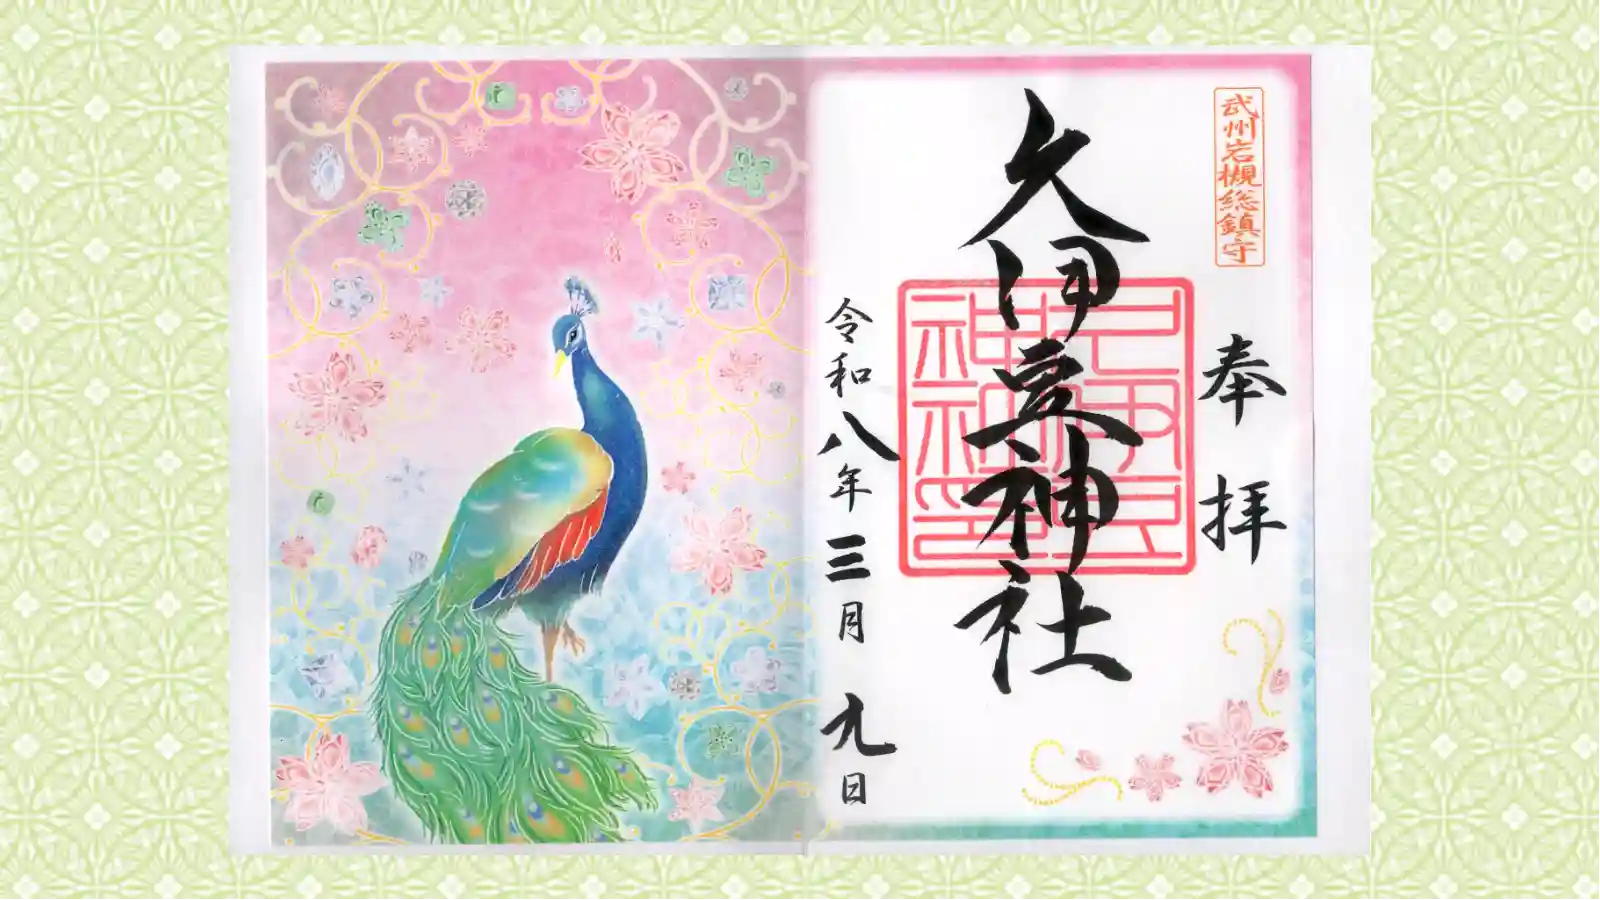 武州岩槻総鎮守
奉拝
久伊豆神社
令和八年三月九日